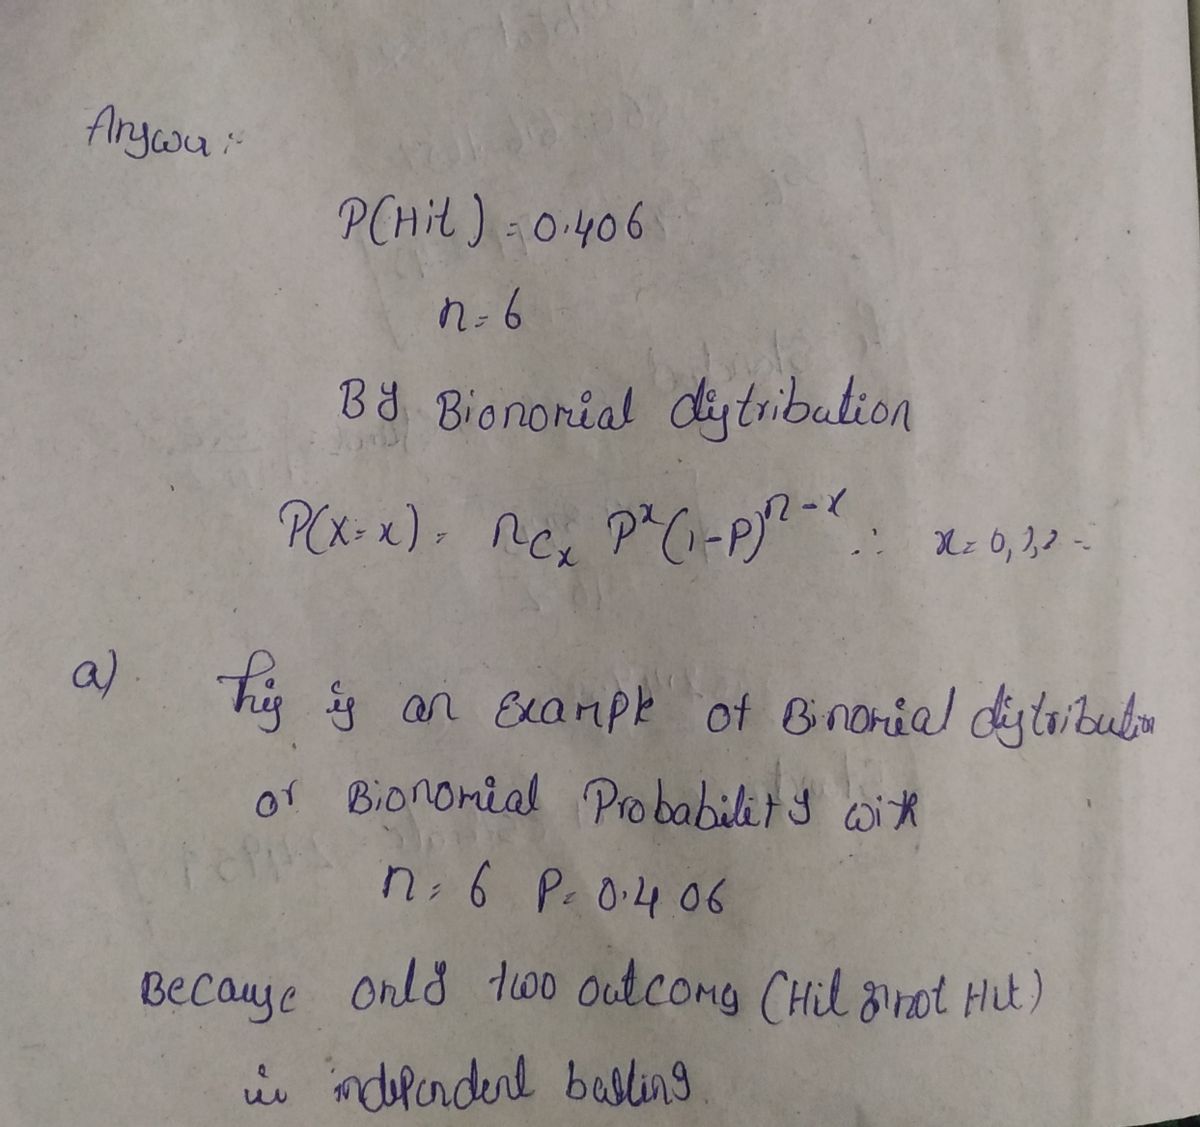 Answer :-
P(Hit) = 0.406
n = 6
By Bionomial distribution
P(X=x) = nCx P^x (1-P)^n-x ∴ x = 0,1,2 -
a) This is an Example of Binomial distribution
or Bionomial Probability with
n = 6 P = 0.406
Because only two outcoms (Hit or not Hit)
in independent batting.